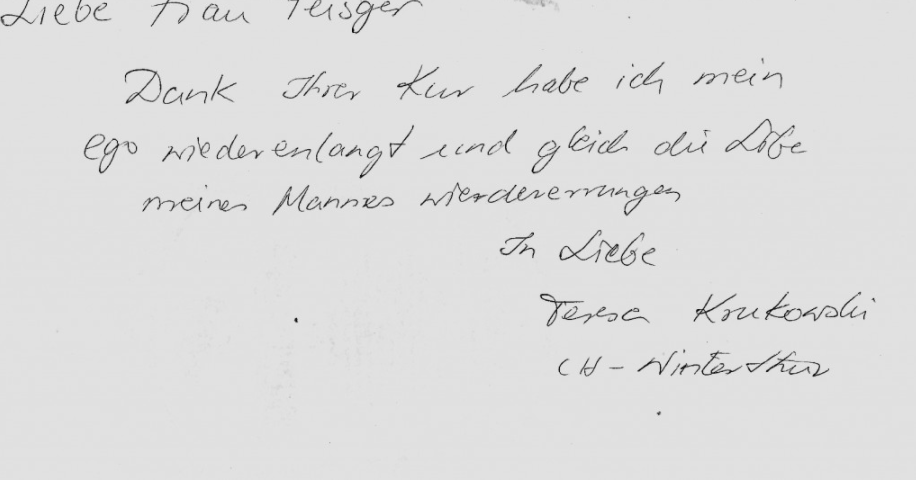 Liebe Frau
Dank Ihrer Kur habe ich mein
ego wiedererlangt und gleich die Liebe
meines Mannes wierdererrungen
In Liebe
Teresa Krukowski
CH - Winterthur